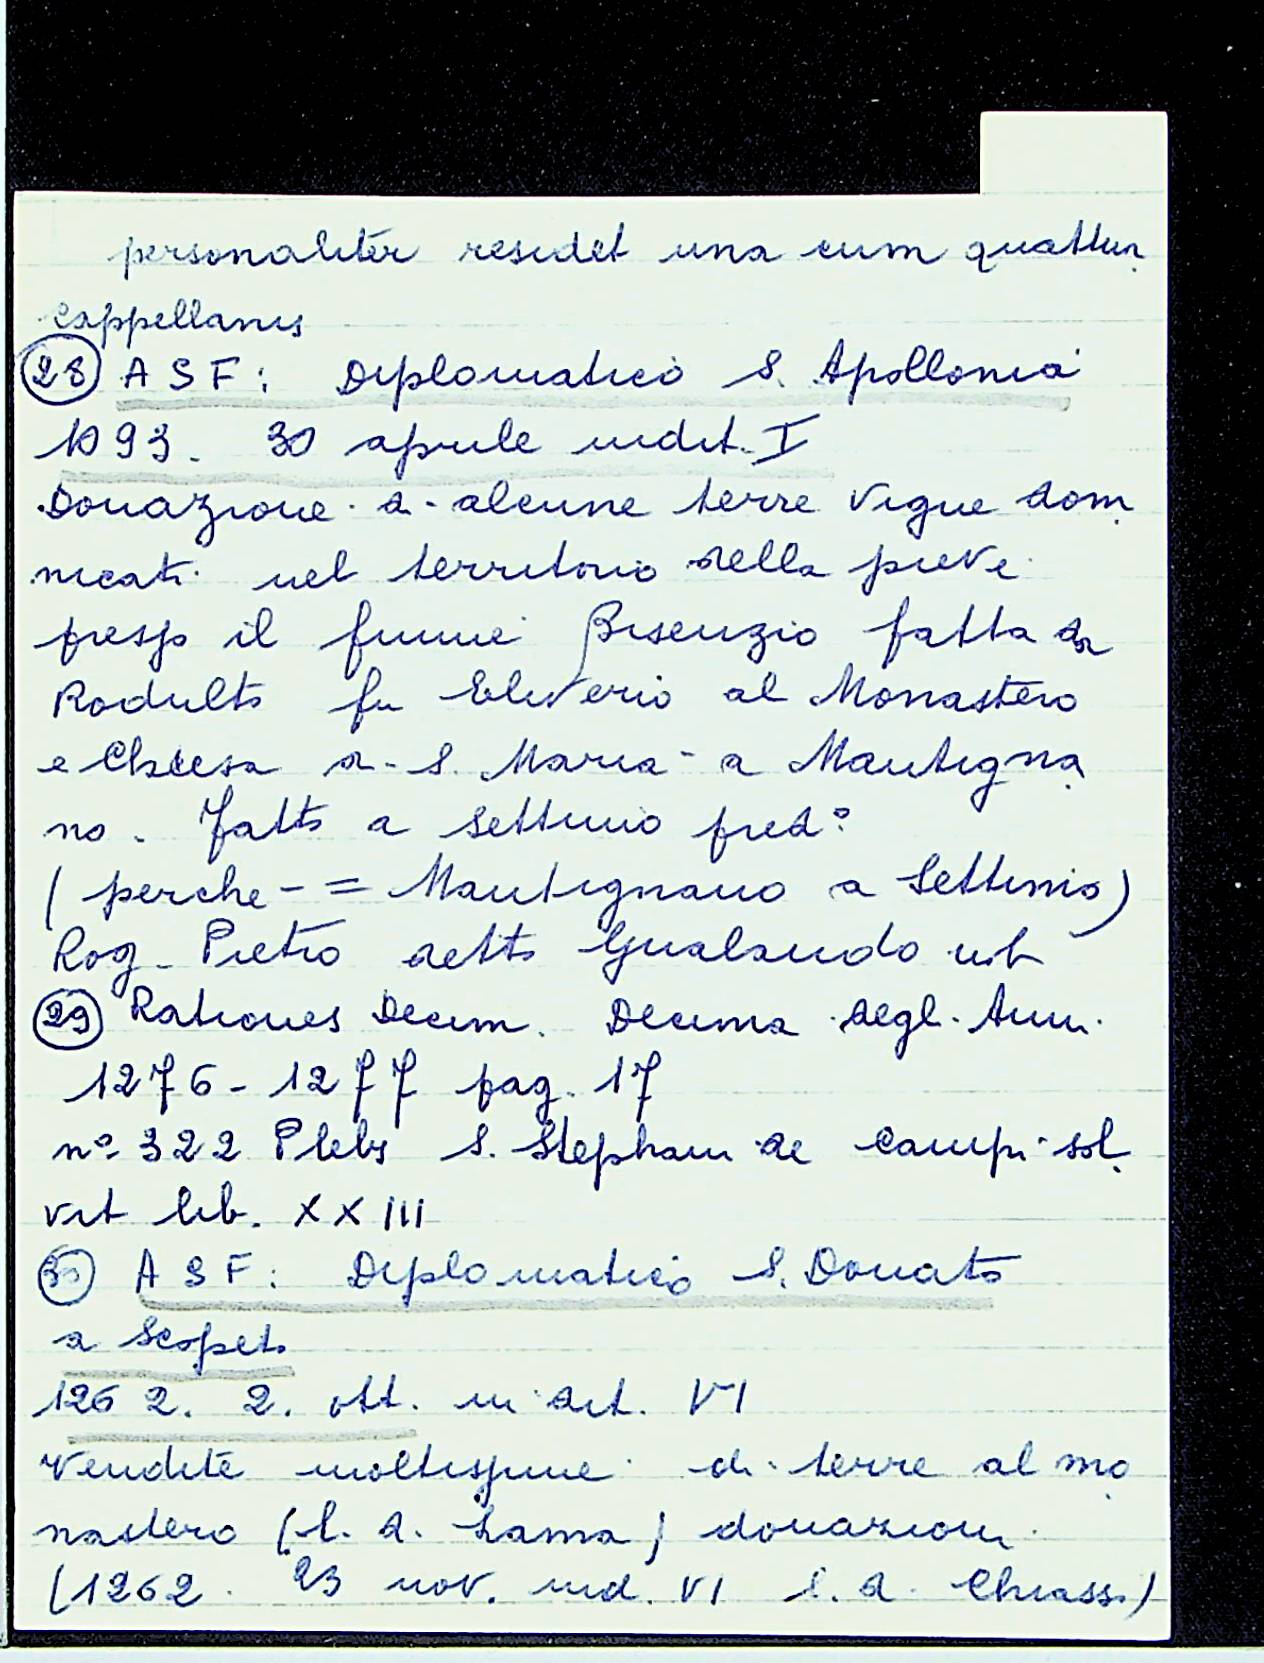 personaliter residet una cum quattuor
cappellanis
28 ASF: Diplomatico S. Apollonia
1093. 30 aprile indit. I
Donazione di alcune terre vigne dom
nicati nel territorio della pieve
presso il fiume Bisenzio fatta da
Rodulfo fu Eliverio al Monastero
e Chiesa di S. Maria a Mantigna
no. Fatto a Settimo pred°
(perche - = Mantignano a Settimo)
Rog. Pietro detto Gualando
29 Rationes Decim. Decima degl. Ann.
1276-1277 pag. 17
n° 322 Plebs S. Stephani de Campi sol
vit lib. XXIII
30 ASF: Diplomatico S. Donato
a Scopeto
1262. 2. ott. indit. VI
Vendite moltissime di terre al mo
nastero (l. d. Lama) donazioni
(1262. 23 nov. ind. VI l. d. Chiassi)